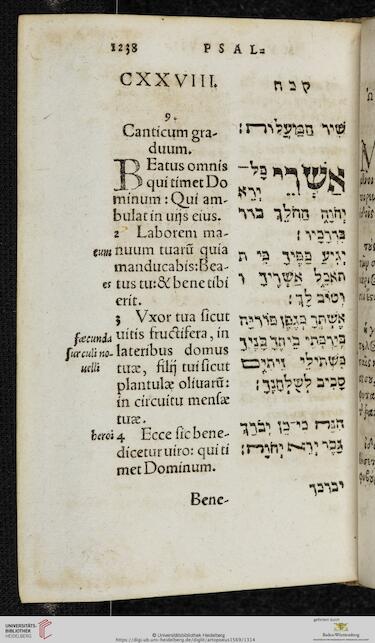 1238
PSAL=
CXXVIII.
קכח
9.
Canticum gra-
duum.
BEatus omnis
qui timet Do
minum: Qui am-
bulat in uijs eius.
2 Laborem ma-
eum nuum tuarũ quia
manducabis: Bea-
es tus tu: & bene tibi
erit.
3 Vxor tua sicut
fæcunda uitis fructifera, in
surculi no- lateribus domus
uelli tuæ, filij tui sicut
plantulæ oliuarũ:
in circuitu mensæ
tuæ.
heroi 4 Ecce sic bene-
dicetur uiro: qui ti
met Dominum.
Bene-
שיר המעלות׃
אשרי כל־
ירא
יהוה ההלך
בדרכיו׃
יגיע כפיך כי ת
תאכל אשריך ו
וטוב לך׃
אשתך כגפן פוריה
בירכתי ביתך בניך
כשתילי זיתים
סביב לשלחנך׃
הנה כי־כן יברך
גבר ירא יהוה׃
יברכך
UNIVERSITÄTS-
BIBLIOTHEK
HEIDELBERG
© Universitätsbibliothek Heidelberg
https://digi.ub.uni-heidelberg.de/diglit/artopoeus1569/1314
gefördert durch
Baden-Württemberg